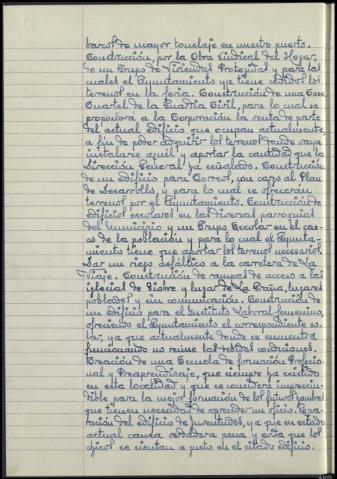 barcos de mayor tonelaje en nuestro puerto.
Construcción, por la Obra Sindical del Hogar,
de un Grupo de Viviendas Protegidas y para las
cuales el Ayuntamiento ya tiene cedidos los
terrenos en la feria. Construcción de una Casa
Cuartel de la Guardia Civil, para lo cual se
propondrá a la Corporación la venta de parte
del actual edificio que ocupan actualmente,
a fin de poder adquirir los terrenos donde vaya
instalarse aquél y aportar la cantidad que la
Dirección General ha señalado. Construcción
de un edificio para Correos, con cargo al Plan
de Desarrollo, y para lo cual se ofrecerán
terrenos por el Ayuntamiento. Construcción de
Edificios escolares en las diversas parroquias
del Municipio y un Grupo Escolar en el cas-
co de la población y para lo cual el Ayunta-
miento tiene que aportar los terrenos necesarios.
Dar un riego asfáltico a la carretera de La
Viaje. Construcción de rampas de acceso a las
iglesias de y lugar de La Braña, lugares
poblados y sin comunicación. Construcción de
un Edificio para el Instituto Laboral femenino,
ofreciendo el Ayuntamiento el correspondiente so-
lar, ya que actualmente donde se encuentra
funcionando no reúne las debidas condiciones.
Creación de una Escuela de formación Profecio-
nal y Preaprendizaje, que siempre ha existido
en esta localidad y que se considera imprescin-
dible para la mejor formación de los futuros hombres
que tienen necesidad de aprender un oficio. Repa-
ración del edificio de Juventudes, ya que su estado
actual causa verdadera pena y evita que los
chicos se sientan a gusto en el citado edificio.